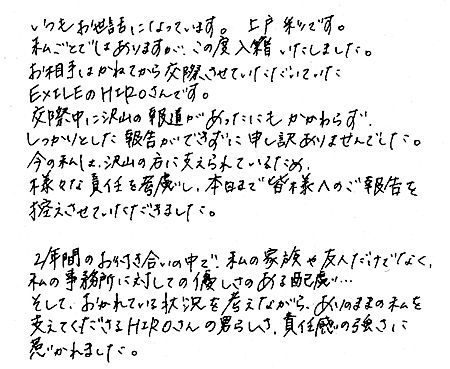 いつもお世話になっています。上戸 彩です。
私ごとではありますが、この度入籍いたしました。
お相手はかねてから交際させていただいていた
EXILEのHIROさんです。
交際中に沢山の報道があったにもかかわらず、
しっかりとした報告ができずに申し訳ありませんでした。
今の私は、沢山の方に支えられているため、
様々な責任を考慮し、本日まで皆様へのご報告を
控えさせていただきました。
2年間のお付き合いの中で、私の家族や友人だけでなく、
私の事務所に対しての優しさのある配慮…
そして、おかれている状況を考えながら、ありのままの私を
支えてくださるHIROさんの男らしさ、責任感の強さに
惹かれました。